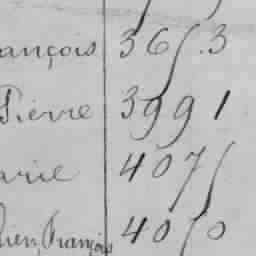 ançois 3653
Pierre 3991
arie 4075
ien François 4050